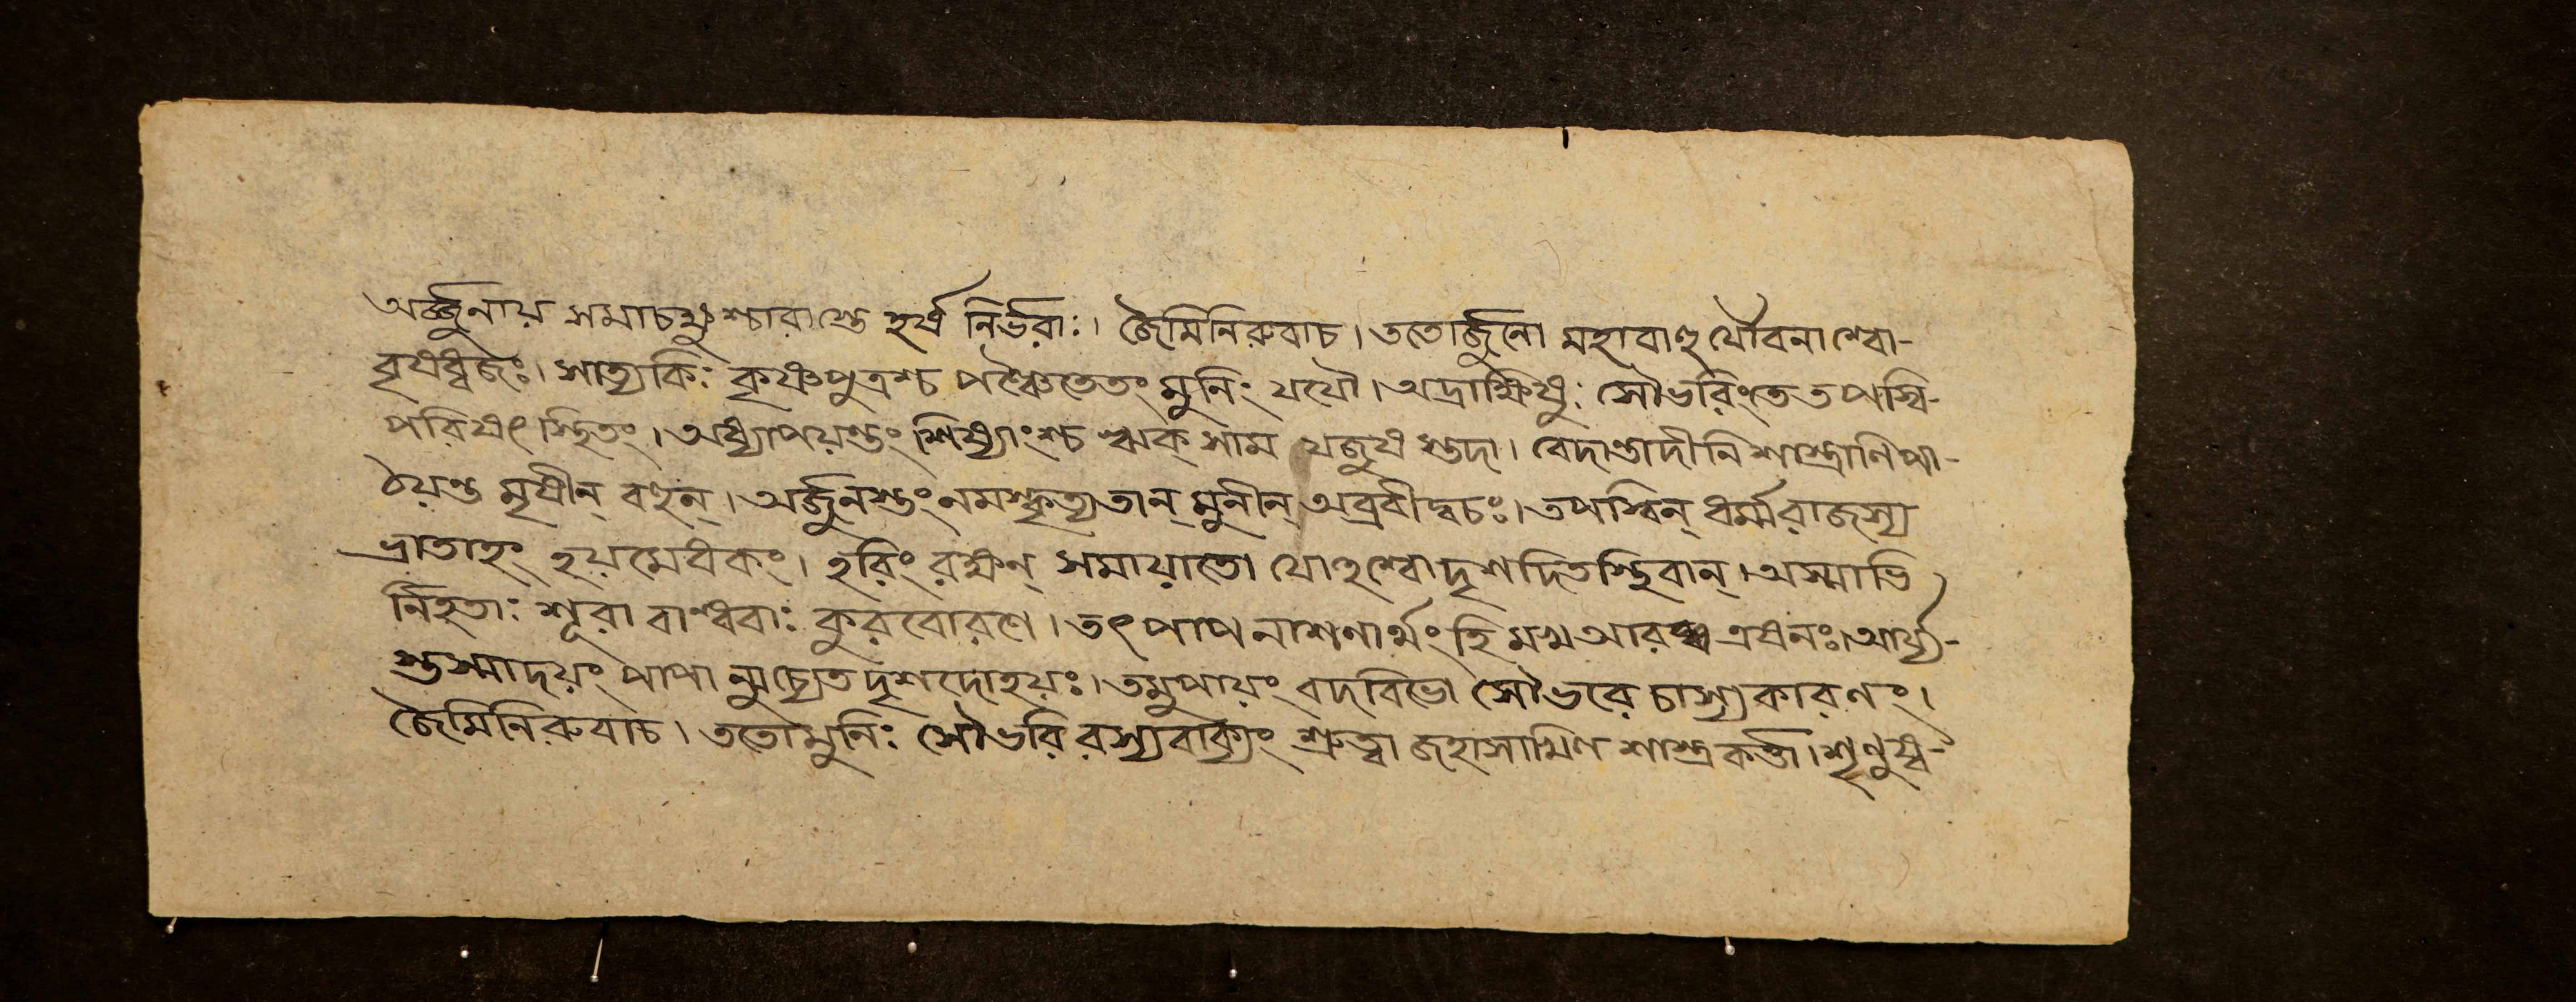 অর্জ্জুনায় সমাচখ্যুশ্চারাস্তে হর্ষ নির্ভরাঃ। জৈমিনিরুবাচ। ততোর্জুনো মহাবাহু যৌবনাশ্বো-
বৃষধ্বজঃ। সাত্যকিঃ কৃষ্ণপুত্রশ্চ পঞ্চৈতেতং মুনিং যযৌ। অদ্রাক্ষিষুঃ সৌভরিংতে তপস্বি-
পরিষৎ স্থিতং। অধ্যাপয়ন্তং শিষ্যাংশ্চ ঋক্ সাম যজুষ স্তদা। বেদান্তাদীনি শাস্ত্রাণি পা-
ঠয়ন্ত মৃষীন্ বহূন্। অর্জুনস্তং নমস্কৃত্য তান্ মুনীন্ অব্রবীদ্বচঃ। তপস্বিন্ ধর্ম্মরাজস্য
ভ্রাতাহং হয়মেধকং। হরিং রক্ষন্ সমায়াতো যোহশ্বো দৃশদিতস্থিবান্। অস্মাভি
র্নিহতাঃ শূরা বান্ধবাঃ কুরবোরণে। তৎ পাপ নাশনার্থং হি মখ আরব্ধ এষনঃ। আর্য্য-
স্তস্মাদয়ং পাপা ন্মুচ্যেত দৃশদোহয়ঃ। তমুপায়ং বদবিভো সৌভরে চাস্য কারণং।
জৈমিনিরুবাচ। ততোমুনিঃ সৌভরি রস্যবাক্যং শ্রুত্বা জহাসামিণ শাস্ত্রকর্ত্তা। শৃণুষ্ব-